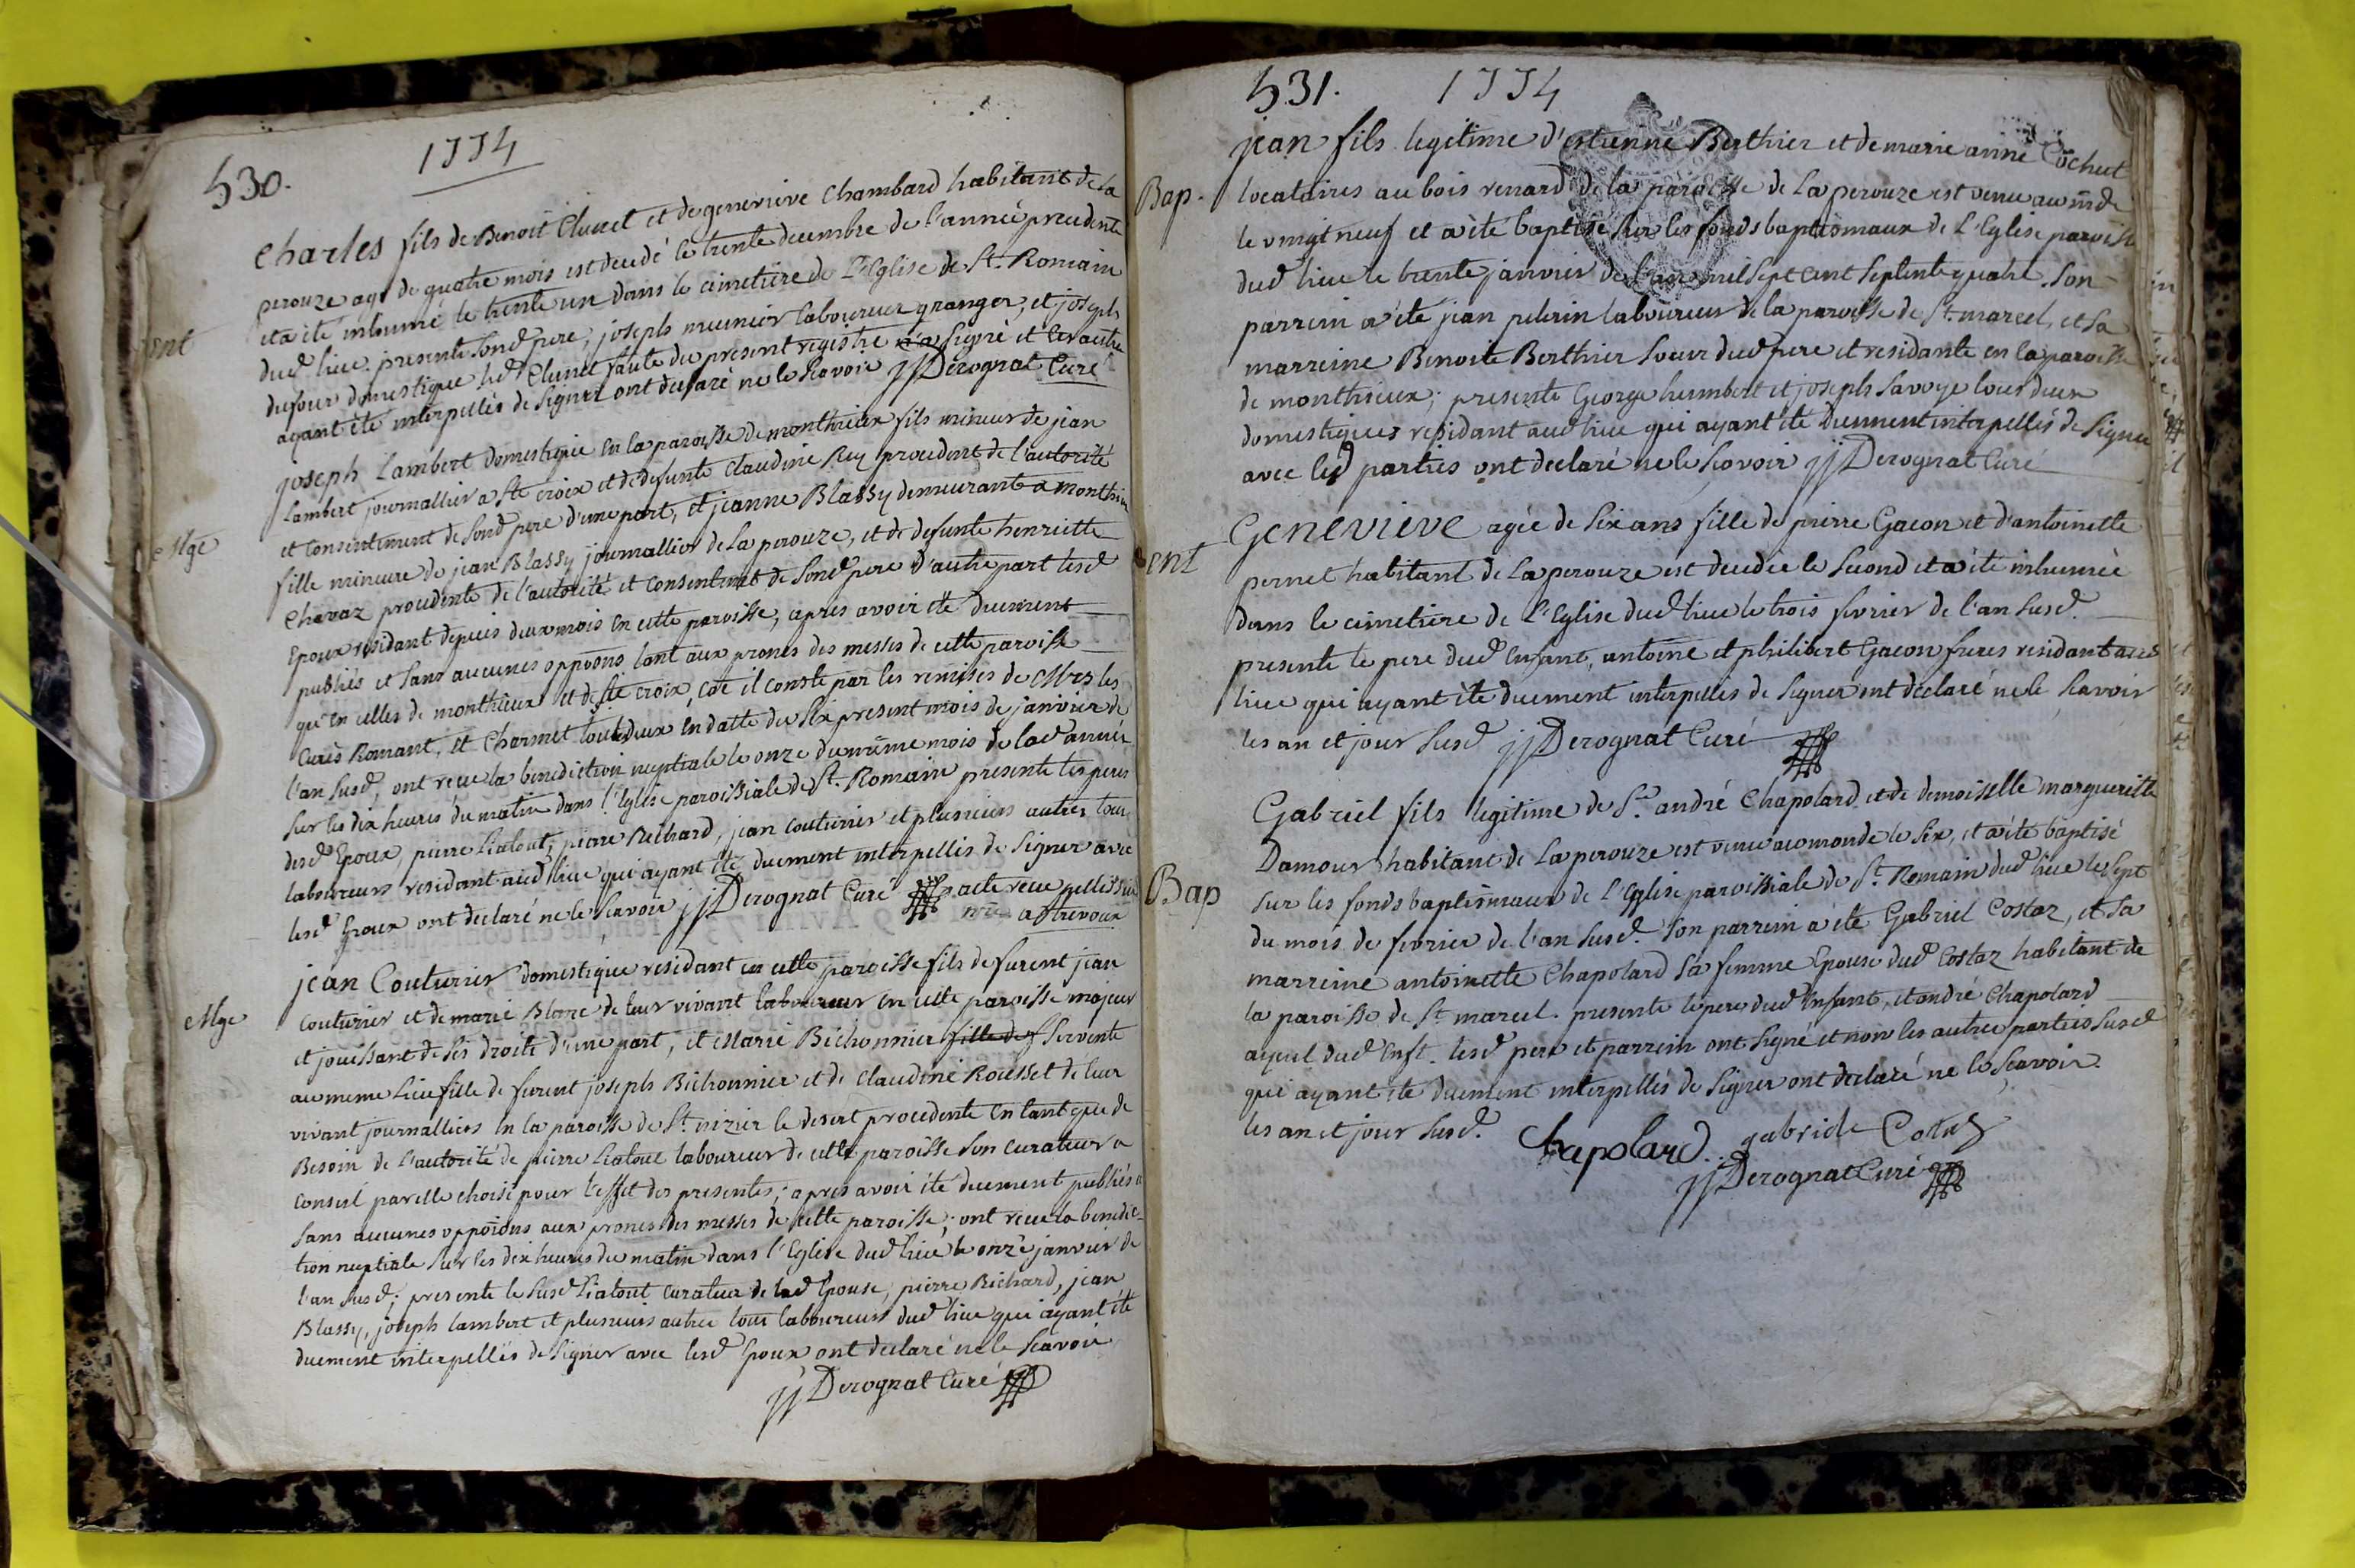 530.
1774
Charles fils de Benoit Clunet et de genevieve Chambard habitant de la
perouze agé de quatre mois est decedé le trente decembre de l'année precedente
et a été inhumé le trente un dans le cimetiere de L'Eglise de St. Romain
ent
dud lieu. presents sond pere, joseph meunier laboureur granger, et joseph
dufour domestique led Clunet faute du present registre n'a signé et les autres
ayant été interpellés de signer ont declaré ne le scavoir jj Derognat Curé
joseph Lambert domestique en la paroisse de monthieux fils mineur de jean
Lambert journallier a Ste croix et de defunte Claudine Rey procedent de l'autorité
et consentement de sond pere d'une part, et jeanne Blassy demeurant a monthieux
Mge
fille mineure de jean Blassy journallier de La perouze, et de defunte henriette
Chavaz procedente de l'autorité et consentement de sond pere d'autre part lesd
Epoux residant depuis deux mois en cette paroisse, apres avoir été duement
publiés et sans aucunes oppoõns tant aux prones des messes de cette paroisse
qu'en celles de monthieux et de ste croix, coe il conste par les remises de Mrs les
Curés Romant, et Charmet tout deux en datte du six present mois de janvier de
l'an susd, ont recu la benediction nuptiale le onze du même mois de lad année
sur les dix heures du matin dans l'Eglise paroissiale de St. Romain presents les peres
desd Epoux, pierre Liatout, pierre Richard, jean couturier et plusieurs autres tous
laboureurs residant aud lieu qui ayant été duement interpellés de signer avec
lesd Epoux ont declaré ne le scavoir jj Derognat Curé acte recue
nre a trevoux
jean Couturier domestique residant en cette paroisse fils de furent jean
couturier et de marie Blanc de leur vivant laboureur en cette paroisse majeur
Mge
et jouissant de ses droits d'une part, et Marie Bichonnier fille de f servente
au meme Lieu fille de furent joseph Bichonnier et de Claudine Rousset de leur
vivant journalliers en la paroisse de St. nizier le desert procedente en tant que de
Besoin de l'autorité de pierre Liatout laboureur de cette paroisse son curateur a
conseil par elle choisi pour l'effet des presentes; apres avoir été duement publiés et
sans aucunes oppoions aux prones des messes de cette paroisse; ont recu la benedic-
tion nuptiale sur les dix heures du matin dans l'Eglise dud lieu le onze janvier de
l'an susd; presents le susd Liatout curateur de lad Epouse, pierre Richard, jean
Blassy, joseph lambert et plusieurs autres tous laboureurs dud lieu qui ayant été
duement interpellés de signer avec lesd Epoux ont declaré ne le scavoir
jj Derognat Curé
531.
1774
jean fils legitime d'estienne Berthier et de marie anne Cochet
Bap.
locataires au bois renard de la paroisse de La perouze est venu au mde
le vingt neuf et a été baptisé sur les fonds baptismaux de L'Eglise paroisse
dud lieu le trente janvier de l'an mil sept cent septente quatre. son
parrein a été jean pelerin laboureur de la paroisse de St. marcel, et sa
marreine Benoite Berthier soeur dud pere et residante en la paroisse
de monthieux; presents George humbert et joseph Savoye tous deux
domestiques residant aud lieu qui ayant été Duement interpellés de signer
avec lesd parties ont declaré ne le scavoir jj Derognat Curé
Genevieve agée de six ans fille de pierre Gacon et d'antoinette
ent
pernet habitant de La perouze est decedée le second et a été inhumée
dans le cimetiere de L'Eglise dud lieu le trois fevrier de l'an susd.
presents le pere dud Enfant, antoine et philibert Gacon freres residant aud
lieu qui ayant été duement interpellés de signer ont déclaré ne le scavoir
les an et jour susd jj Derognat Curé
Gabriel fils legitime de Sr. andré Chapolard et de demoiselle marguerite
Damour habitant de La perouze est venu au monde le six, et a été baptisé
Bap
sur les fonds baptismaux de L'Eglise paroissiale de St. Romain dud lieu le sept
du mois de fevrier de l'an susd. son parrein a été Gabriel Costaz, et sa
marreine antoinette Chapolard sa femme Epouse dud Costaz habitant de
la paroisse de St. marcel. presents le pere dud Enfant, et andré Chapolard
ayeul dud Enft. lesd pere et parrein ont signé et non les autres parties susd
qui ayant été duement interpellés de signer ont declaré ne le scavoir.
les an et jour susd.
Chapolard. gabriele Costaz
jj Derognat Curé